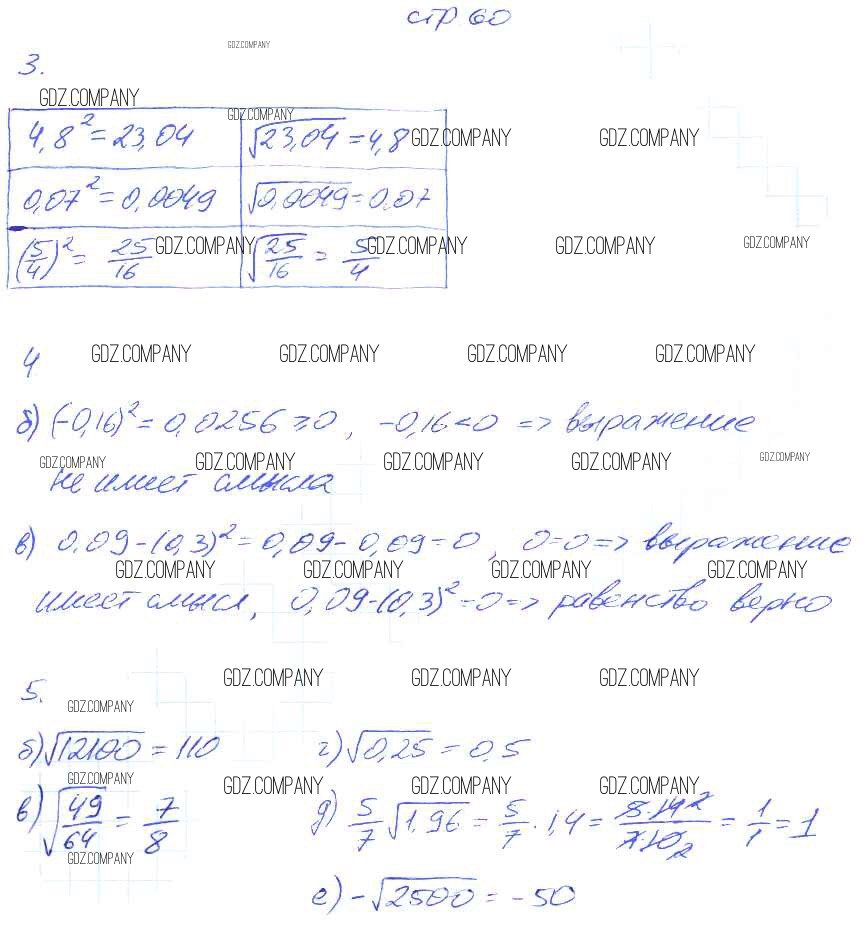 стр 60
GDZ.COMPANY
3.
GDZ.COMPANY
GDZ.COMPANY
4,8² = 23,04 √23,04 = 4,8 GDZ.COMPANY GDZ.COMPANY
0,07² = 0,0049 √0,0049 = 0,07
(5/4)² = 25/16 GDZ.COMPANY √25/16 = 5/4 GDZ.COMPANY GDZ.COMPANY GDZ.COMPANY
4 GDZ.COMPANY GDZ.COMPANY GDZ.COMPANY GDZ.COMPANY
б) (-0,16)² = 0,0256 ≥ 0, -0,16 < 0 => выражение
GDZ.COMPANY GDZ.COMPANY GDZ.COMPANY GDZ.COMPANY GDZ.COMPANY
не имеет смысла
в) 0,09-(0,3)² = 0,09 - 0,09 = 0, 0=0 => выражение
GDZ.COMPANY GDZ.COMPANY GDZ.COMPANY GDZ.COMPANY
имеет смысл, 0,09-(0,3)² = 0 => равенство верно
GDZ.COMPANY GDZ.COMPANY GDZ.COMPANY
5.
GDZ.COMPANY
б) √12100 = 110 г) √0,25 = 0,5
GDZ.COMPANY GDZ.COMPANY GDZ.COMPANY GDZ.COMPANY
в) √49/64 = 7/8 д) 5/7 √1,96 = 5/7 · 1,4 = 5·14 2/7·10 2 = 1/1 = 1
GDZ.COMPANY
е) -√2500 = -50